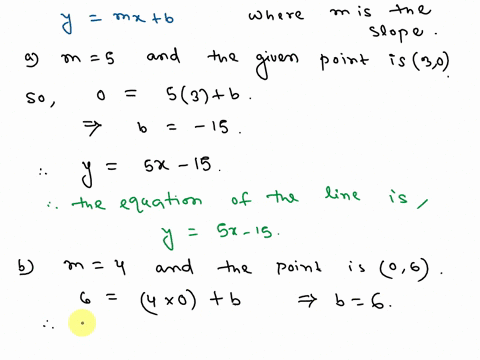 y = mx+b where m is the slope.
a) m = 5 and the given point is (3,0)
so, 0 = 5(3)+b.
⇒ b = -15.
∴ y = 5x-15.
∴ the equation of the line is,
y = 5x-15.
b) m = 4 and the point is (0,6).
6 = (4×0)+b ⇒ b = 6.
∴